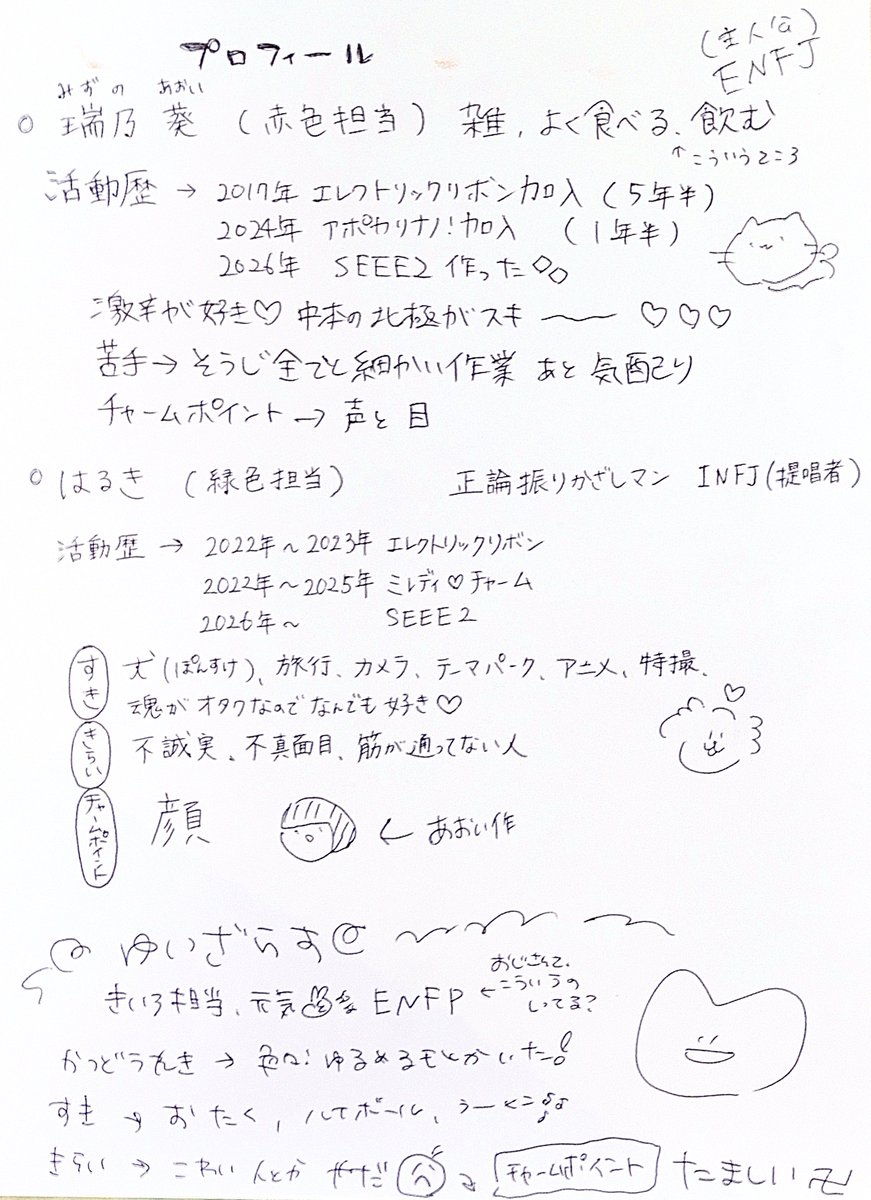 プロフィール
(主人公)
ENFJ
みずの あおい
瑞乃 葵 (赤色担当) 雑, よく食べる、飲む
↑こういうところ
活動歴 → 2017年 エレクトリックリボン加入 (5年半)
2024年 アポカリナノ!加入 (1年半)
2026年 SEEE2 作った
激辛が好き♡ 中本の北極がスキ 〜 ♡♡♡
苦手→ そうじ全てと細かい作業 あと 気配り
チャームポイント → 声と目
はるき (緑色担当) 正論振りかざしマン INFJ(提唱者)
活動歴 → 2022年〜2023年 エレクトリックリボン
2022年〜2025年 ミレディ♡チャーム
2026年〜 SEEE2
すき 犬(ぽんすけ)、旅行、カメラ、テーマパーク、アニメ、特撮、
魂がオタクなのでなんでも好き♡
きらい 不誠実、不真面目、筋が通ってない人
チャームポイント 顔 ← あおい作
ゆいざらす
きいろ担当、元気 ENFP ← おじさんて、
こういうの
しってる?
かつどうれき → 色々!ゆるめるモとかいた!
すき → おたく, ハイボール,
きらい → こわい人とか やだ → チャームポイント たましい 卍